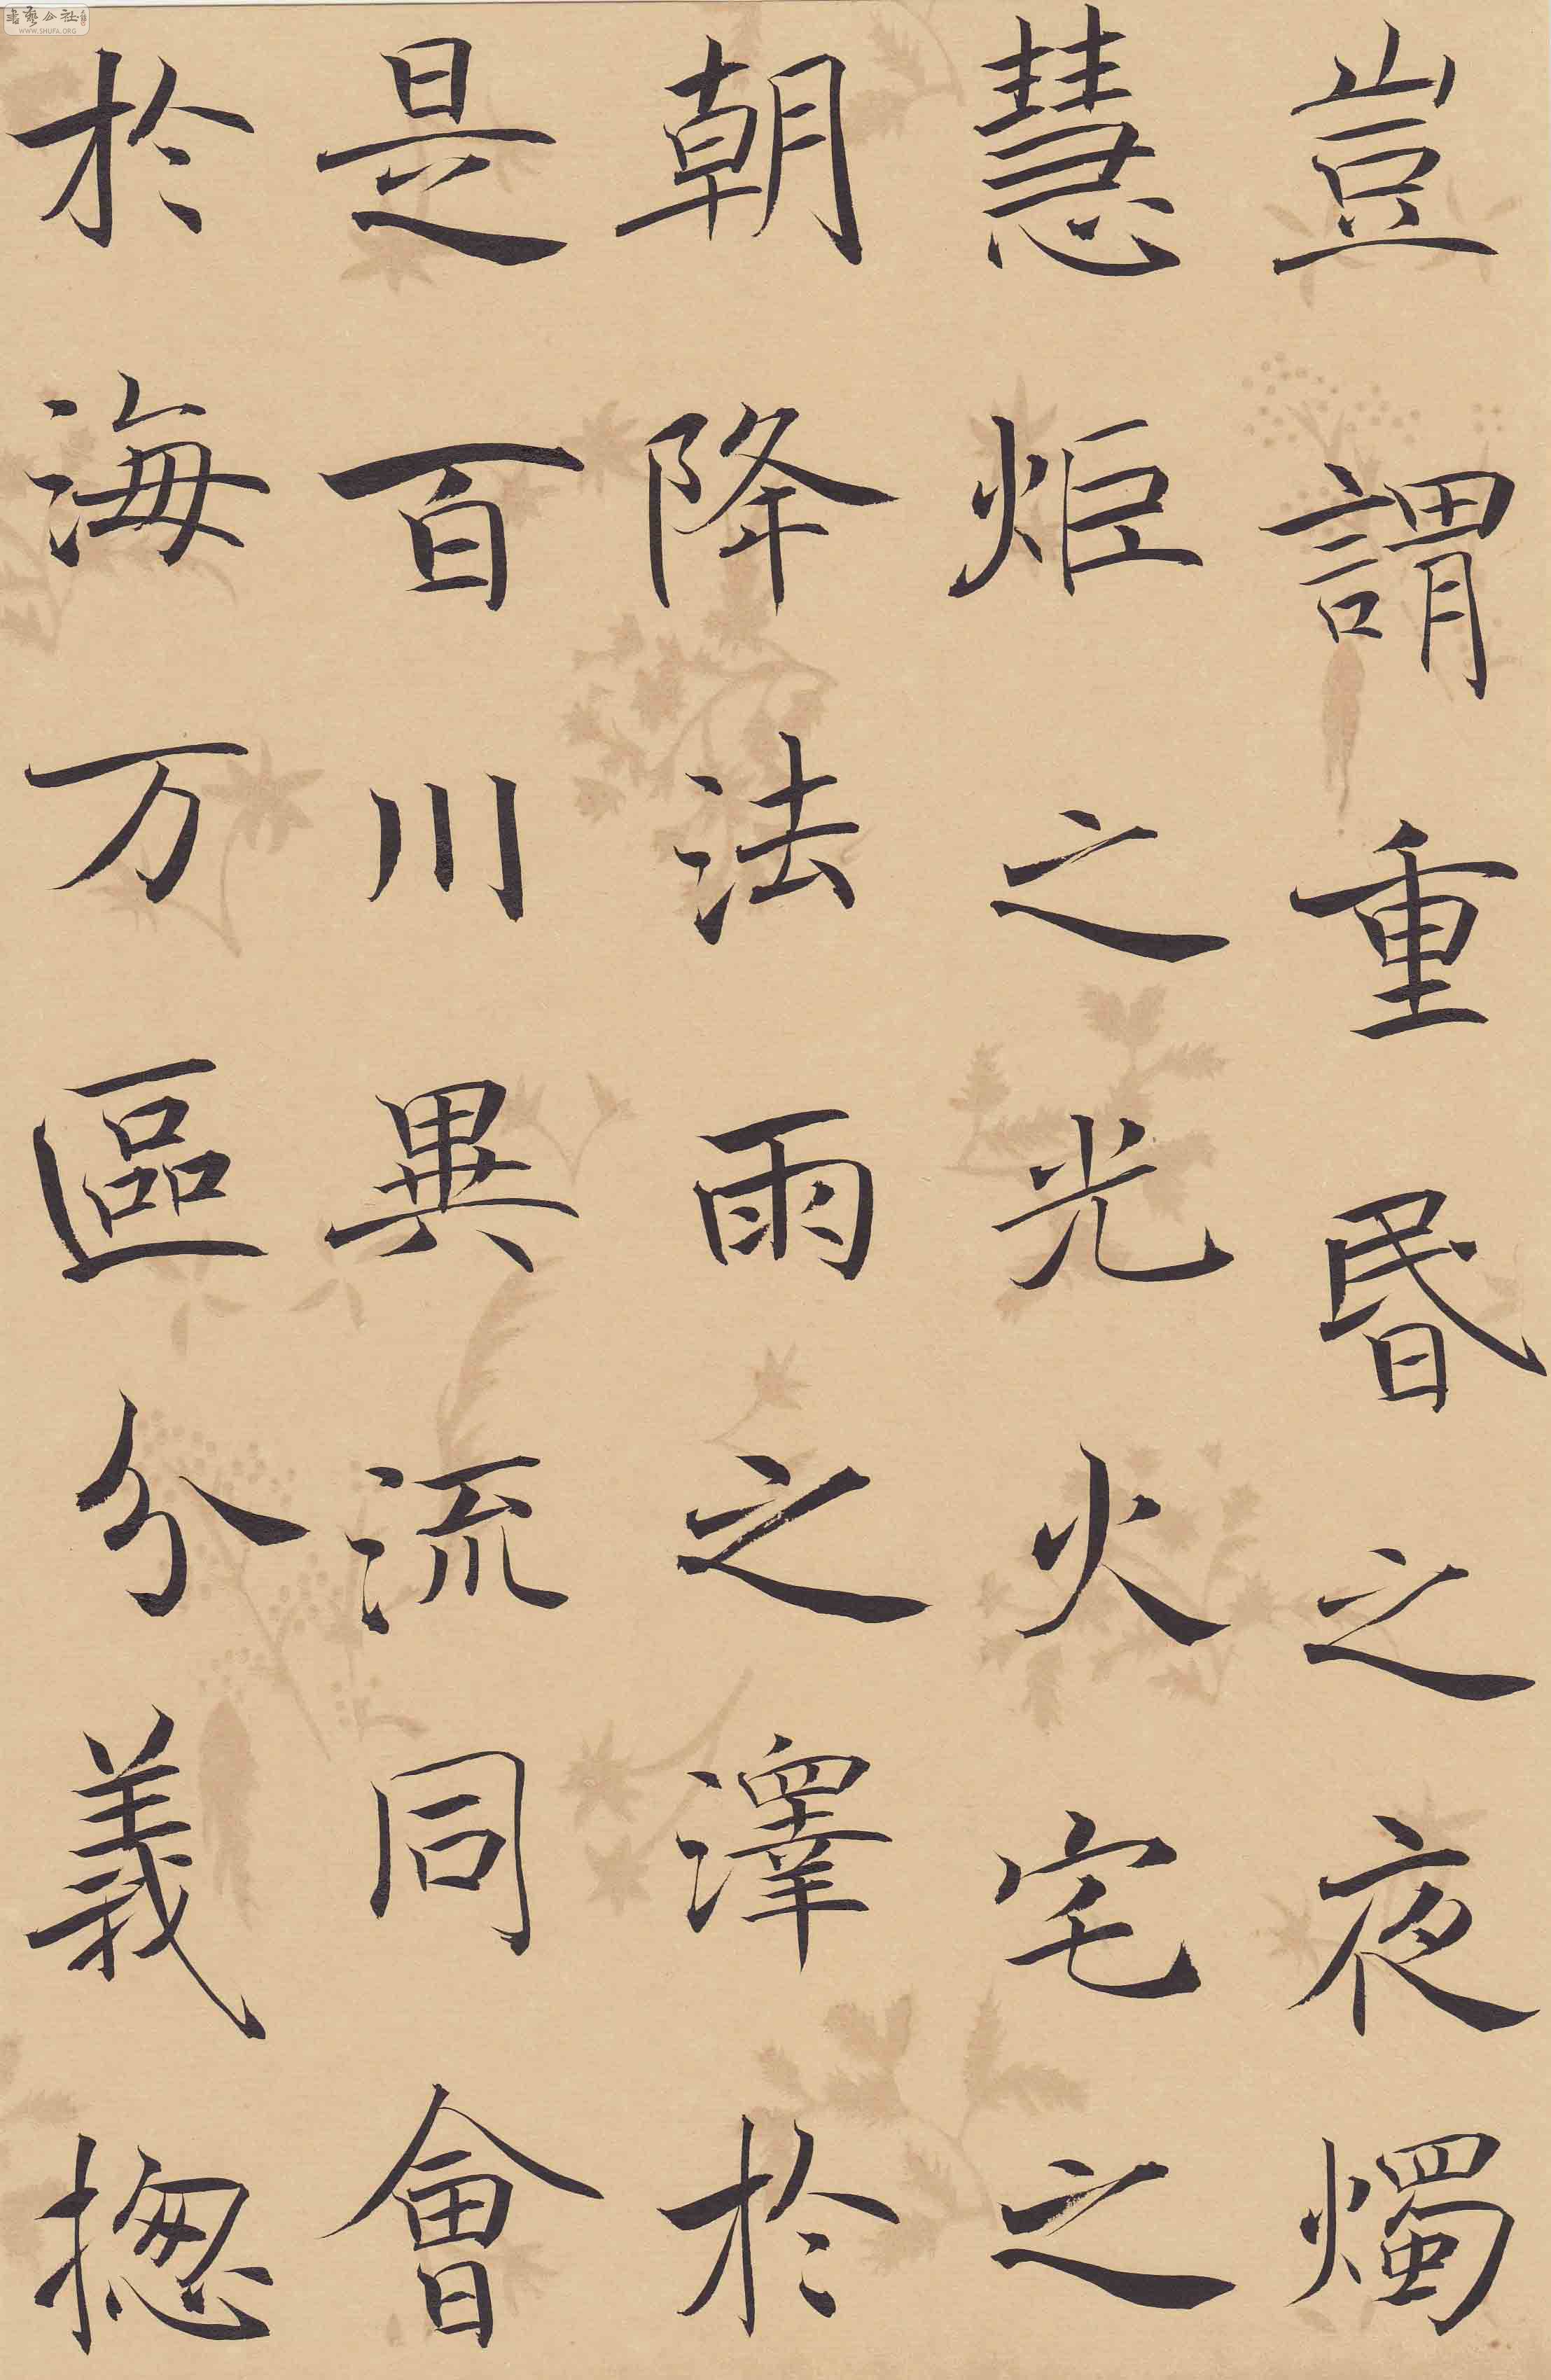 豈謂重昬之夜燭
慧炬之光火宅之
朝降法雨之澤於
是百川異流同會
於海万區分義捴
書藝公社
WWW.SHUFA.ORG